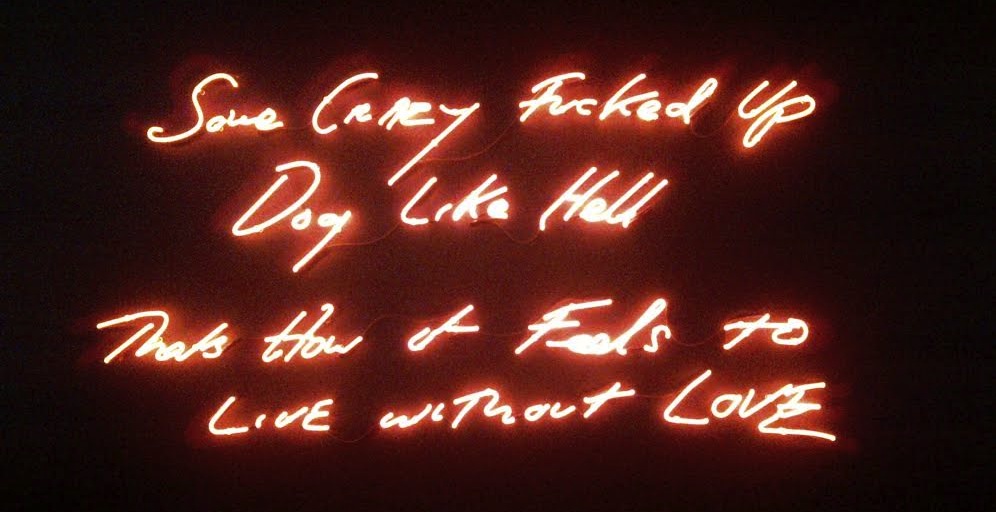 Some CRAZY Fucked Up
Dog Like Hell
Thats How it Feels to
LIVE wiThouT LOVE